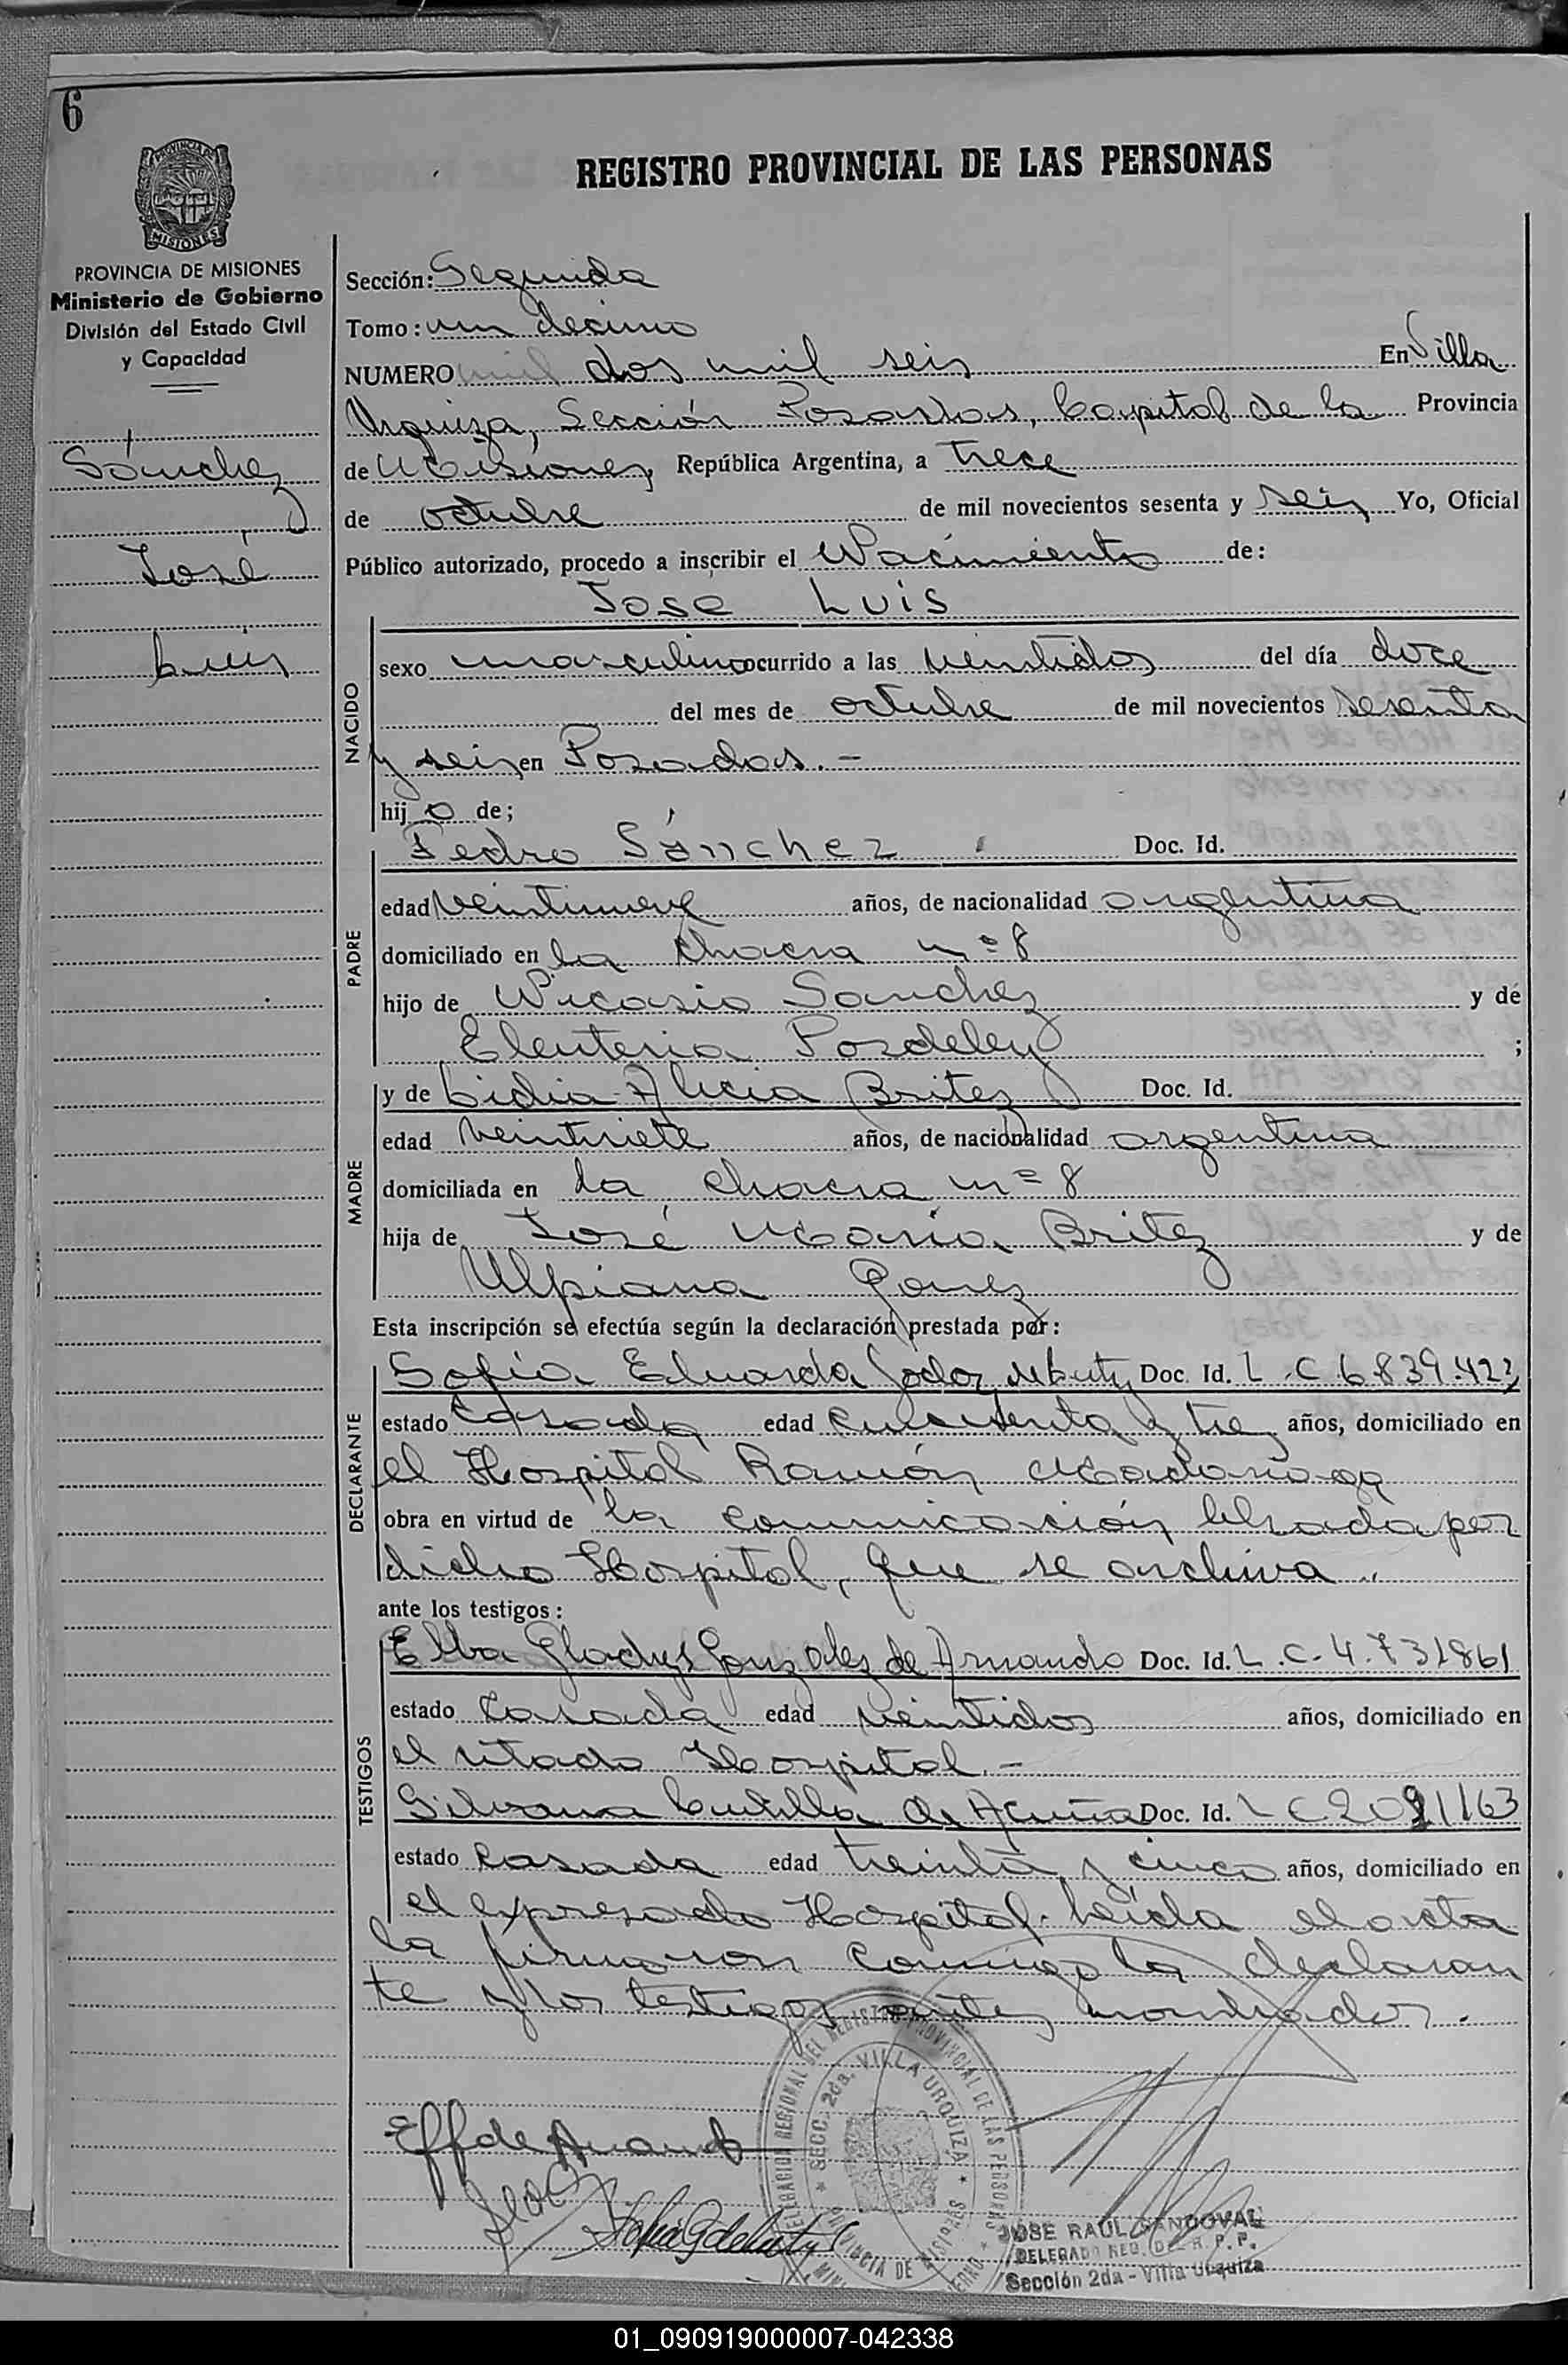 6
REGISTRO PROVINCIAL DE LAS PERSONAS
PROVINCIA DE MISIONES
MISIONES
PROVINCIA DE MISIONES
Ministerio de Gobierno
División del Estado Civil
y Capacidad
Sánchez
José
Luis
Sección: Segunda
Tomo: un decimo
NUMERO mil dos mil seis En Villa
Urquiza, Sección Posadas, Capital de la Provincia
de Misiones, República Argentina, a trece
de octubre de mil novecientos sesenta y seis Yo, Oficial
Público autorizado, procedo a inscribir el Nacimiento de:
JOSE LUIS
NACIDO
sexo masculino ocurrido a las veintidos del día doce
del mes de octubre de mil novecientos sesenta
y seis en Posadas.-
hijo de;
PADRE
Pedro Sánchez Doc. Id.
edad veintinueve años, de nacionalidad argentina
domiciliado en la chacra nº 8
hijo de Nicasio Sanchez y de
Eleuteria Posdeley ;
MADRE
y de Lidia Alicia Britez Doc. Id.
edad veintisiete años, de nacionalidad argentina
domiciliada en la chacra nº 8
hija de José María Britez y de
Ulpiana Gomez
Esta inscripción se efectúa según la declaración prestada por:
DECLARANTE
Sofía Eduarda de Doc. Id. L.C 6839.422
estado casada edad cuarenta y tres años, domiciliado en
el Hospital Ramón Madariaga
obra en virtud de la comunicación librada por
dicho Hospital, que se archiva.
ante los testigos:
TESTIGOS
Elba Gladys Gonzalez de Armando Doc. Id. L.C. 4.731861
estado casada edad veintidos años, domiciliado en
el citado Hospital.-
Silvana de Acuña Doc. Id. L C 2091163
estado casada edad treinta y cinco años, domiciliado en
el expresado Hospital. Leída el acta
la firmaron conmigo la declaran
te y los testigos antes nombrados.
DELEGACION REGIONAL DEL REGISTRO PROVINCIAL DE LAS PERSONAS
SECC. 2da. VILLA URQUIZA
PROVINCIA DE MISIONES
JOSE RAUL SANDOVAL
DELEGADO REG. DEL R. P. P.
Sección 2da - Villa Urquiza
01_090919000007-042338